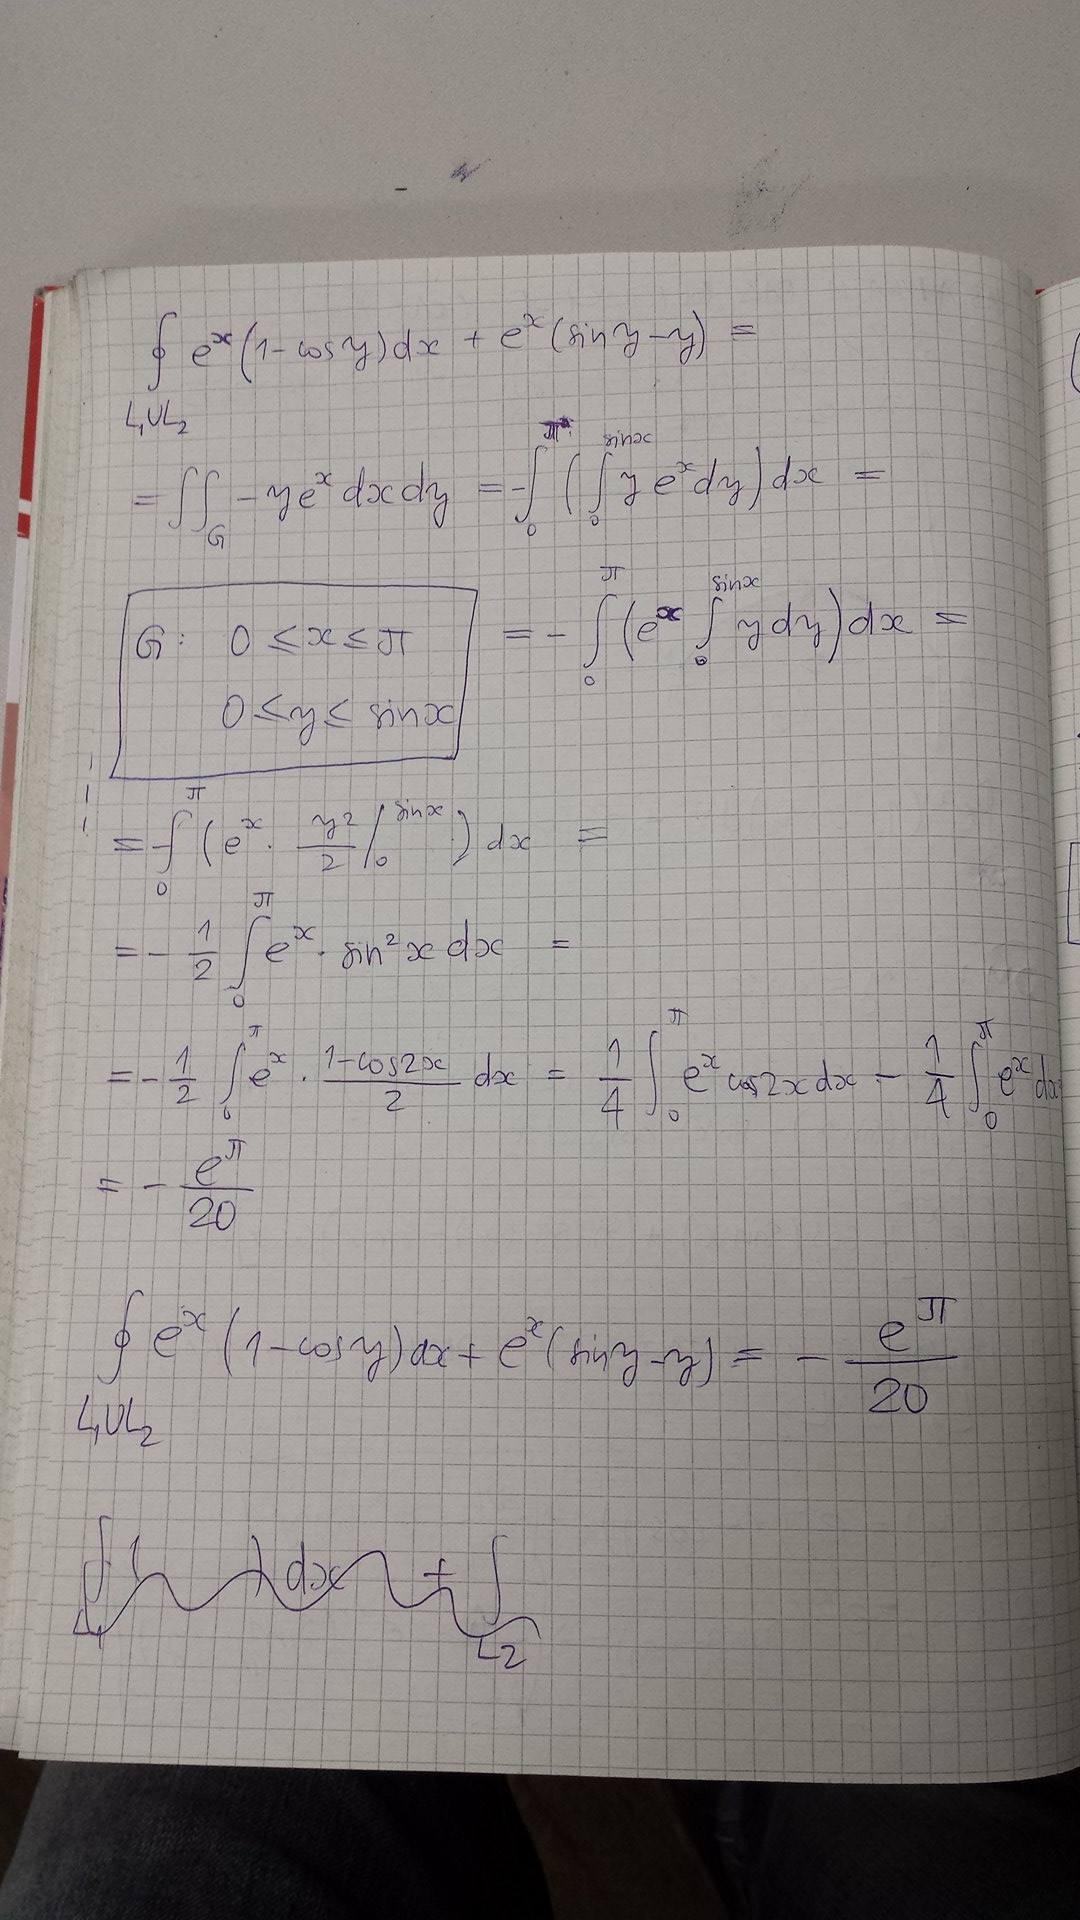 ∮ eˣ(1-cosy)dx + eˣ(siny-y) =
L₁UL₂
= ∬ - yeˣ dxdy = - ∫₀^π ( ∫₀^sinx y eˣdy ) dx =
G
G: 0 ≤ x ≤ π
0 ≤ y ≤ sinx
= - ∫₀^π (eˣ ∫₀^sinx ydy) dx =
= - ∫₀^π (eˣ · y²/2 /₀^sinx ) dx =
= - 1/2 ∫₀^π eˣ · sin²x dx =
= - 1/2 ∫₀^π eˣ · (1-cos2x)/2 dx = 1/4 ∫₀^π eˣ cos2x dx - 1/4 ∫₀^π eˣ dx
= - e^π/20
∮ eˣ (1-cosy)dx + eˣ(siny-y) = - e^π/20
L₁UL₂
∮ ( ) dx + ∫
L₁ L₂